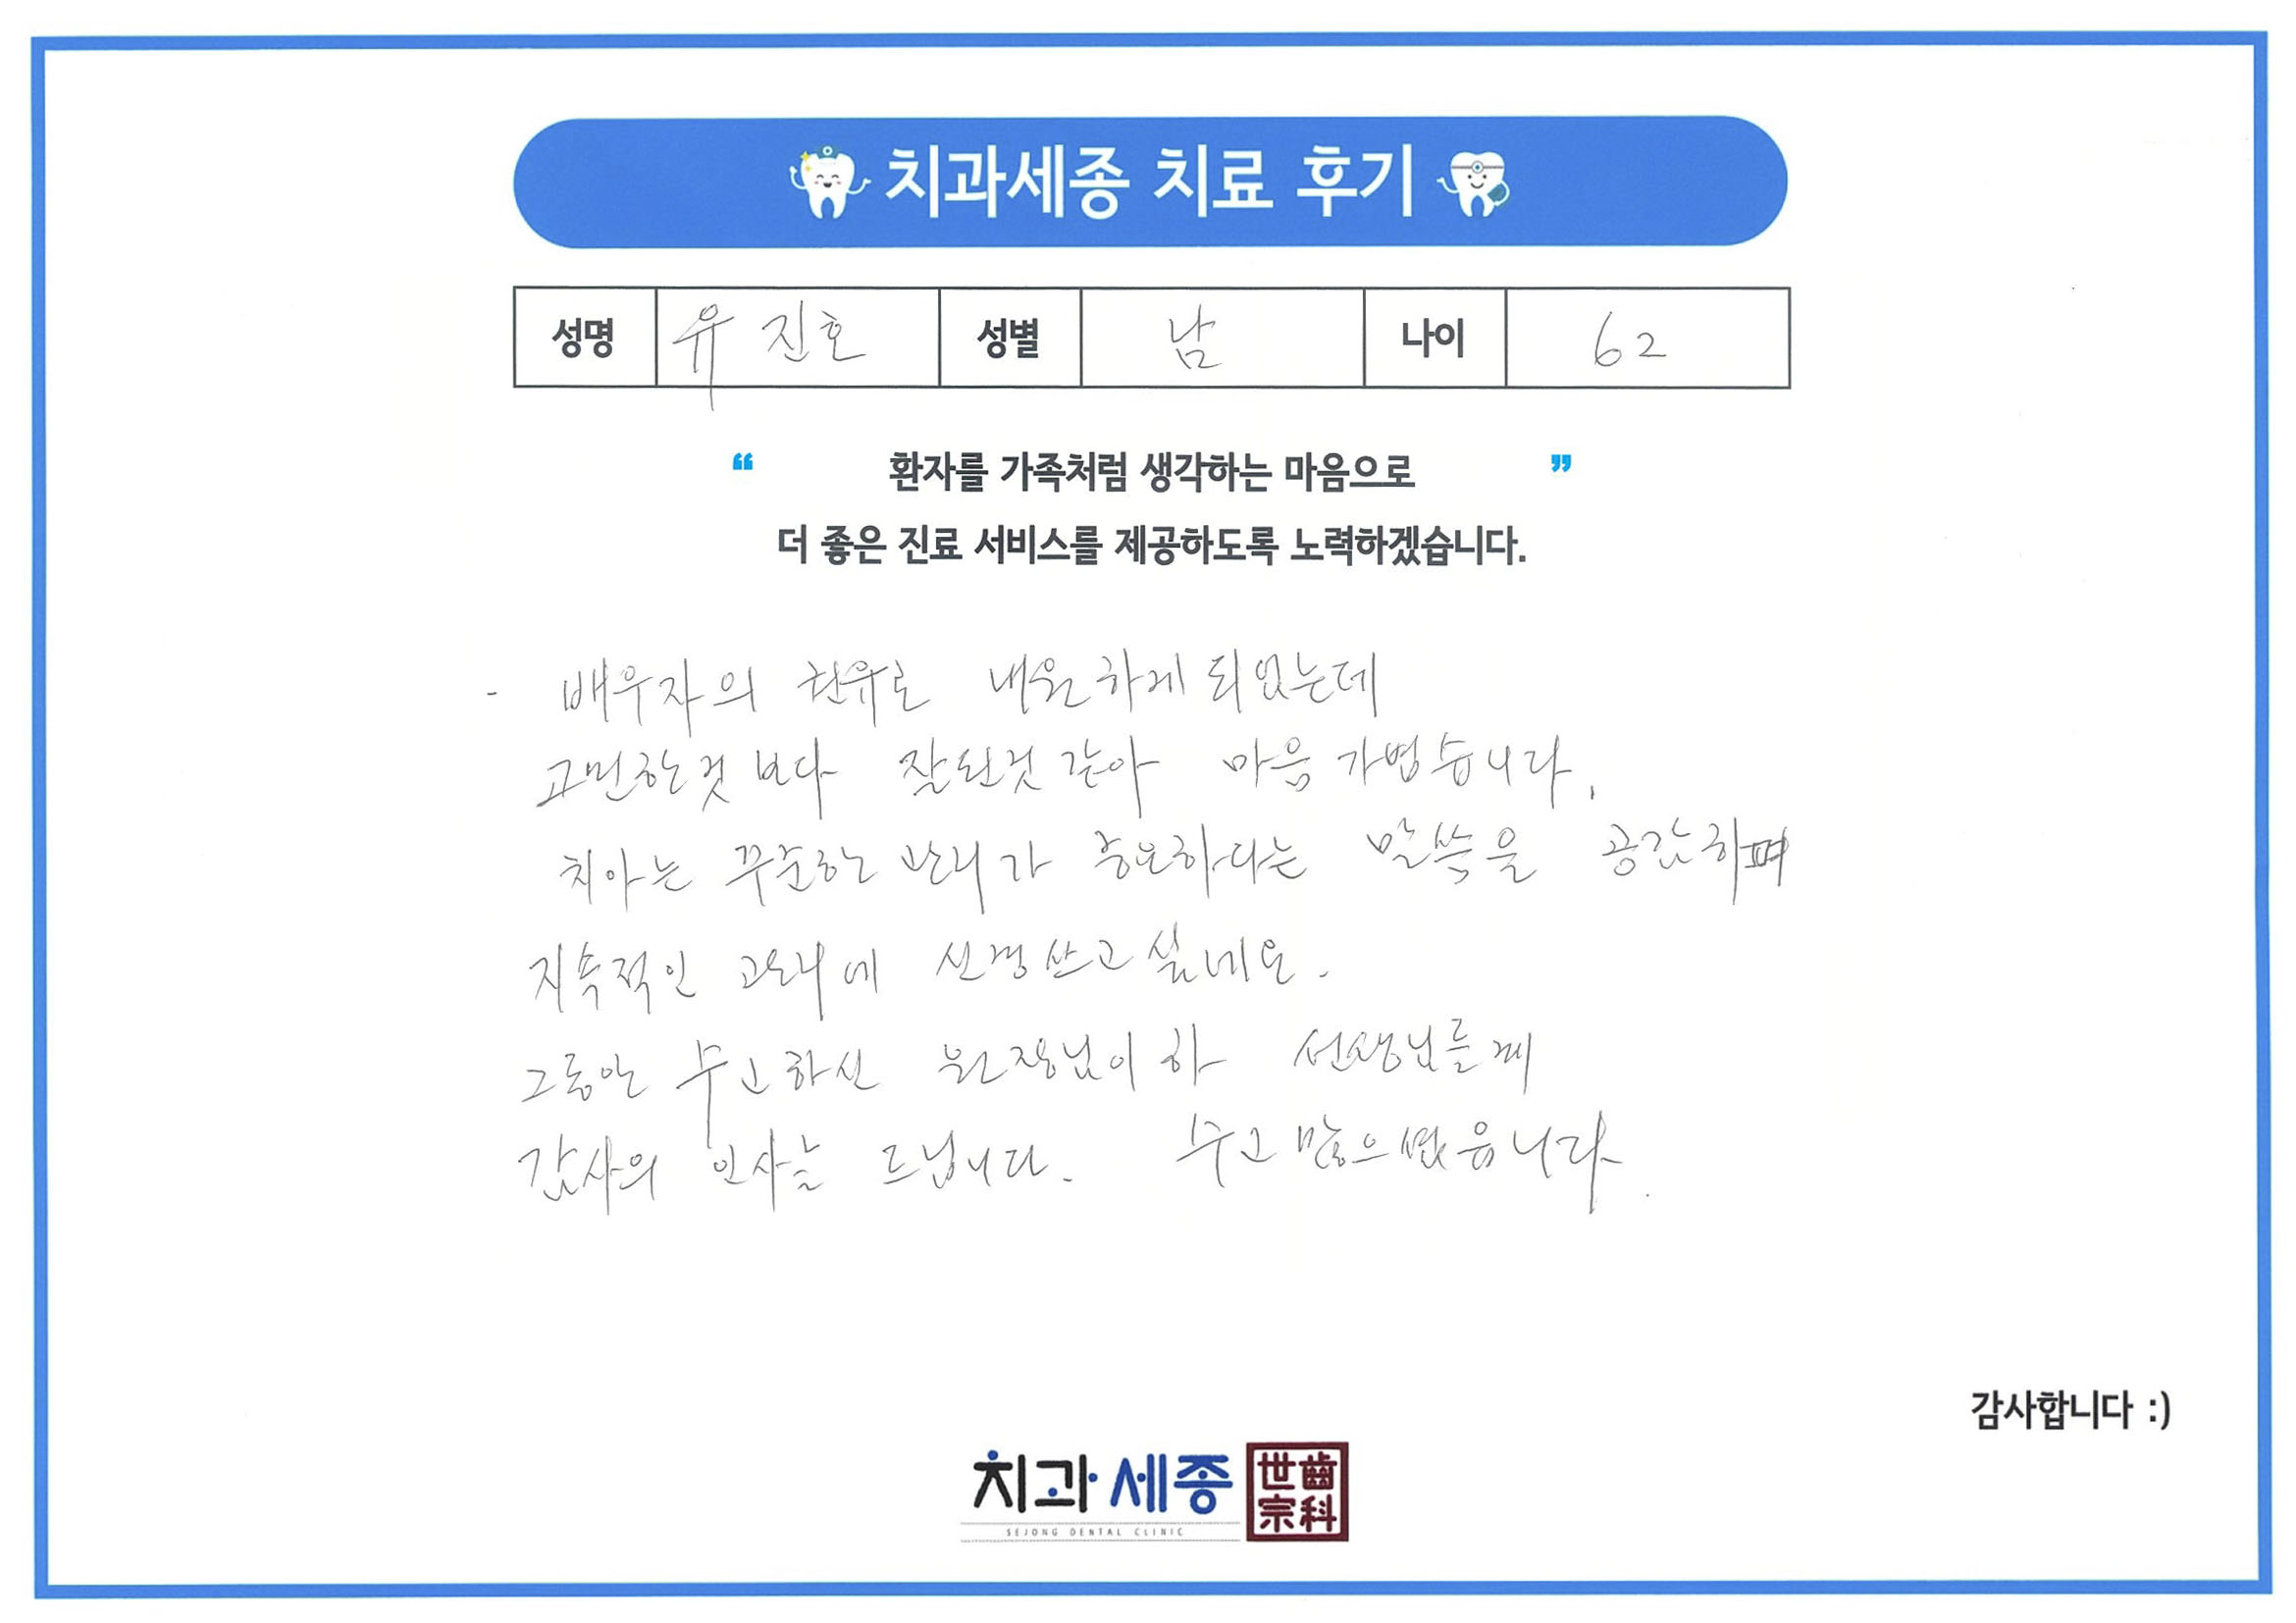 치과세종 치료 후기
성명 유진호 성별 남 나이 62
“ 환자를 가족처럼 생각하는 마음으로 ”
더 좋은 진료 서비스를 제공하도록 노력하겠습니다.
- 배우자의 권유로 내원하게 되었는데
고민한것 보다 잘된것 같아 마음 가볍습니다.
치아는 꾸준한 관리가 중요하다는 말씀을 공감하며
지속적인 관리에 신경쓰고 싶네요.
그동안 수고하신 원장님이하 선생님들께
감사의 인사를 드립니다. 수고 많으셨읍니다.
감사합니다 :)
치과세종
世齒
宗科
SEJONG DENTAL CLINIC